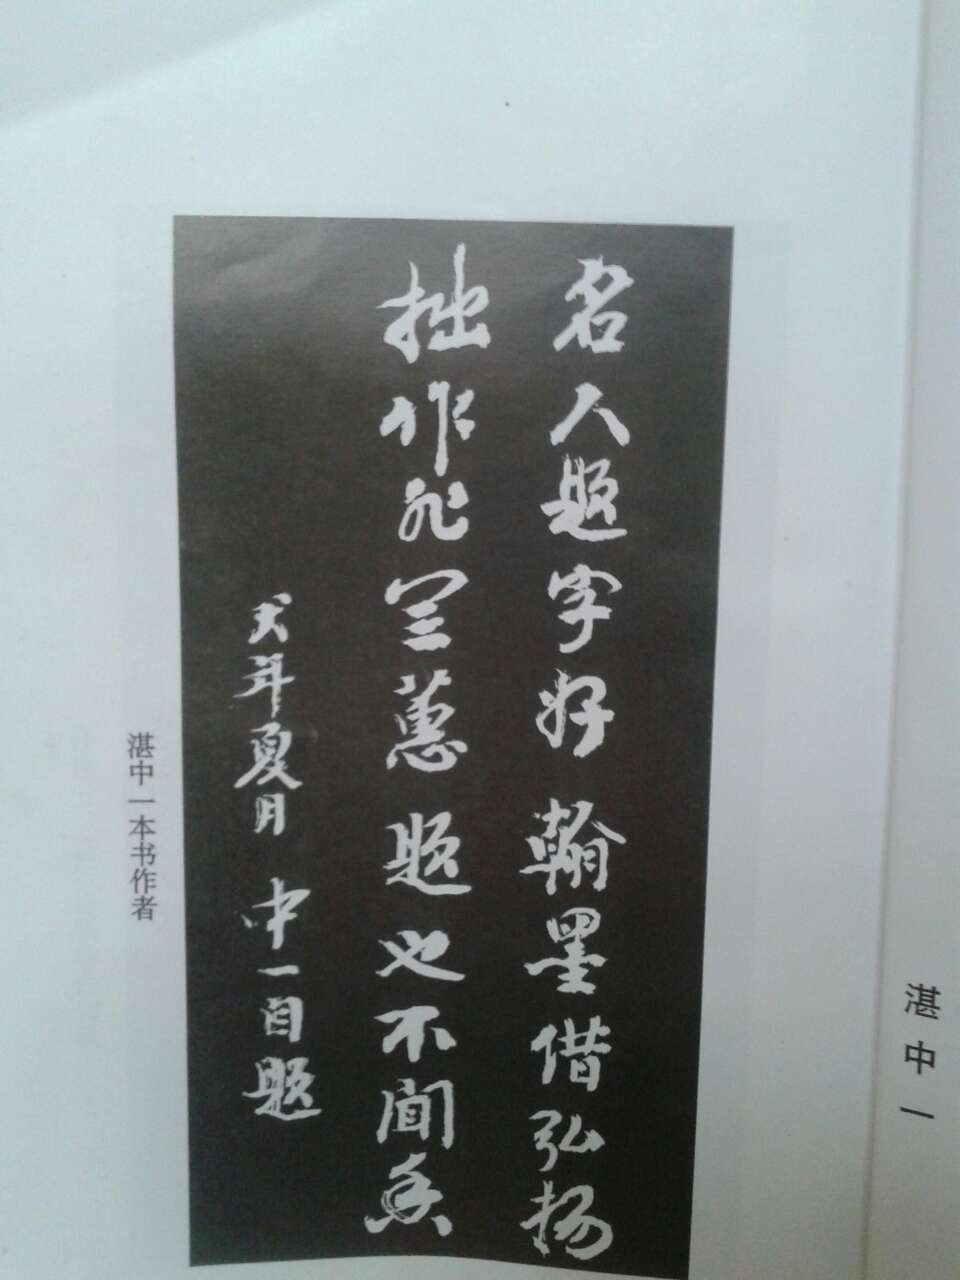 名人题字好翰墨借弘扬
拙作非兰蕙题也不闻香
犬年夏月 中一自题
湛中一本书作者
湛中一